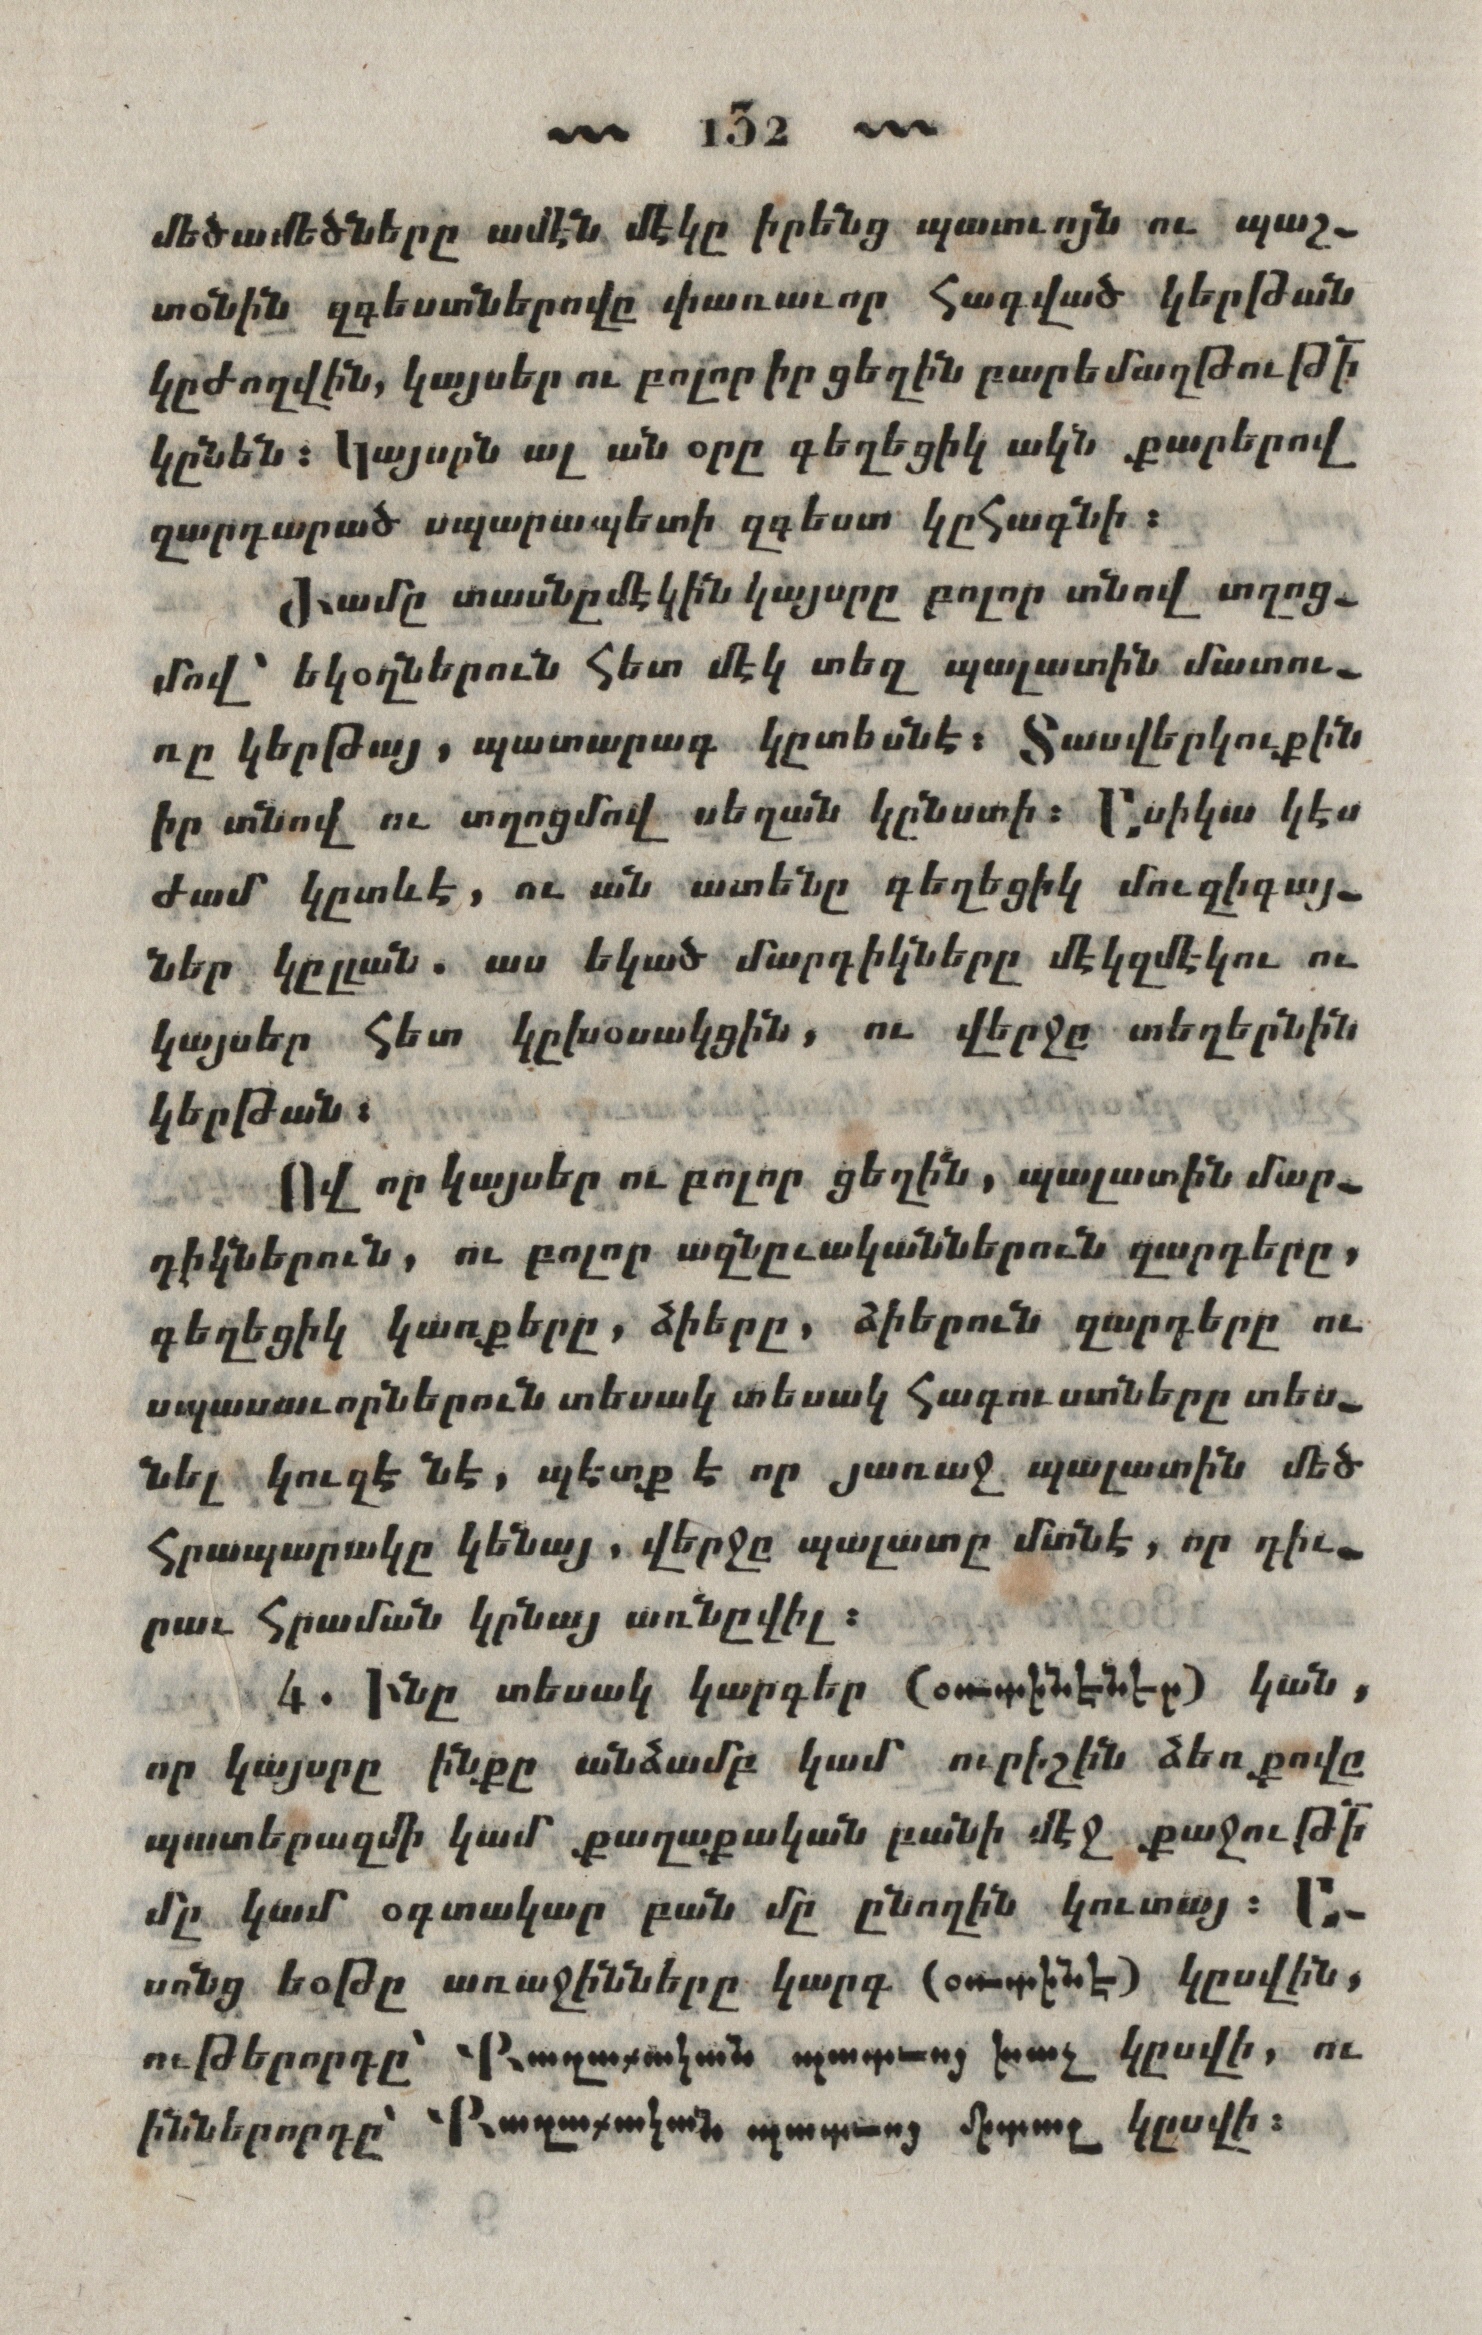 132
մեծամեծները ամէն մէկը իրենց պատւոյն ու պաշ-
տօնին զգեստներովը փառաւոր հագված կերթան
կըժողվին, կայսեր ու բոլոր իր ցեղին բարեմաղթուԹի
կընեն։ Կայսրն ալ ան օրը գեղեցիկ ակն քարերով
զարդարած սպարապետի զգեստ կըհագնի։
Ժամը տասնըմէկին կայսրը բոլոր տնով տղոց-
մով՝ եկօղներուն հետ մէկ տեղ պալատին մատու-
ռը կերթայ, պատարագ կըտեսնէ։ Տասվերկուքին
իր տնով ու տղոցմով սեղան կընստի։ Ըսիկա կէս
ժամ կըտևէ, ու ան ատենը գեղեցիկ մուզիգայ-
ներ կըլան. աս եկած մարդիկները մէկզմէկու ու
կայսեր հետ կըխօսակցին, ու վերջը տեղերնին
կերթան։
Ով որ կայսեր ու բոլոր ցեղին, պալատին մար-
դիկներուն, ու բոլոր ազնըւականներուն զարդերը,
գեղեցիկ կառքերը, ձիերը, ձիերուն զարդերը ու
սպասաւորներուն տեսակ տեսակ հագուստները տես-
նել կուզէ նէ, պէտք է որ յառաջ պալատին մեծ
հրապարակը կենայ, վերջը պալատը մտնէ, որ դիւ-
րաւ հրաման կրնայ առնըվիլ։
4. Ինը տեսակ կարգեր (օռտինէնէր) կան,
որ կայսրը ինքը անձամբ կամ ուրիշին ձեռքովը
պատերազմի կամ քաղաքական բանի մէջ քաջուԹի
մը կամ օգտակար բան մը ընողին կուտայ։ Ը-
սոնց եօթը առաջինները կարգ (օռտինէ) կըսվին,
ութերորդը՝ Քաղաքական պատւոց խաչ կըսվի, ու
իններորդը՝ Քաղաքական պատւոց մետալ կըսվի։